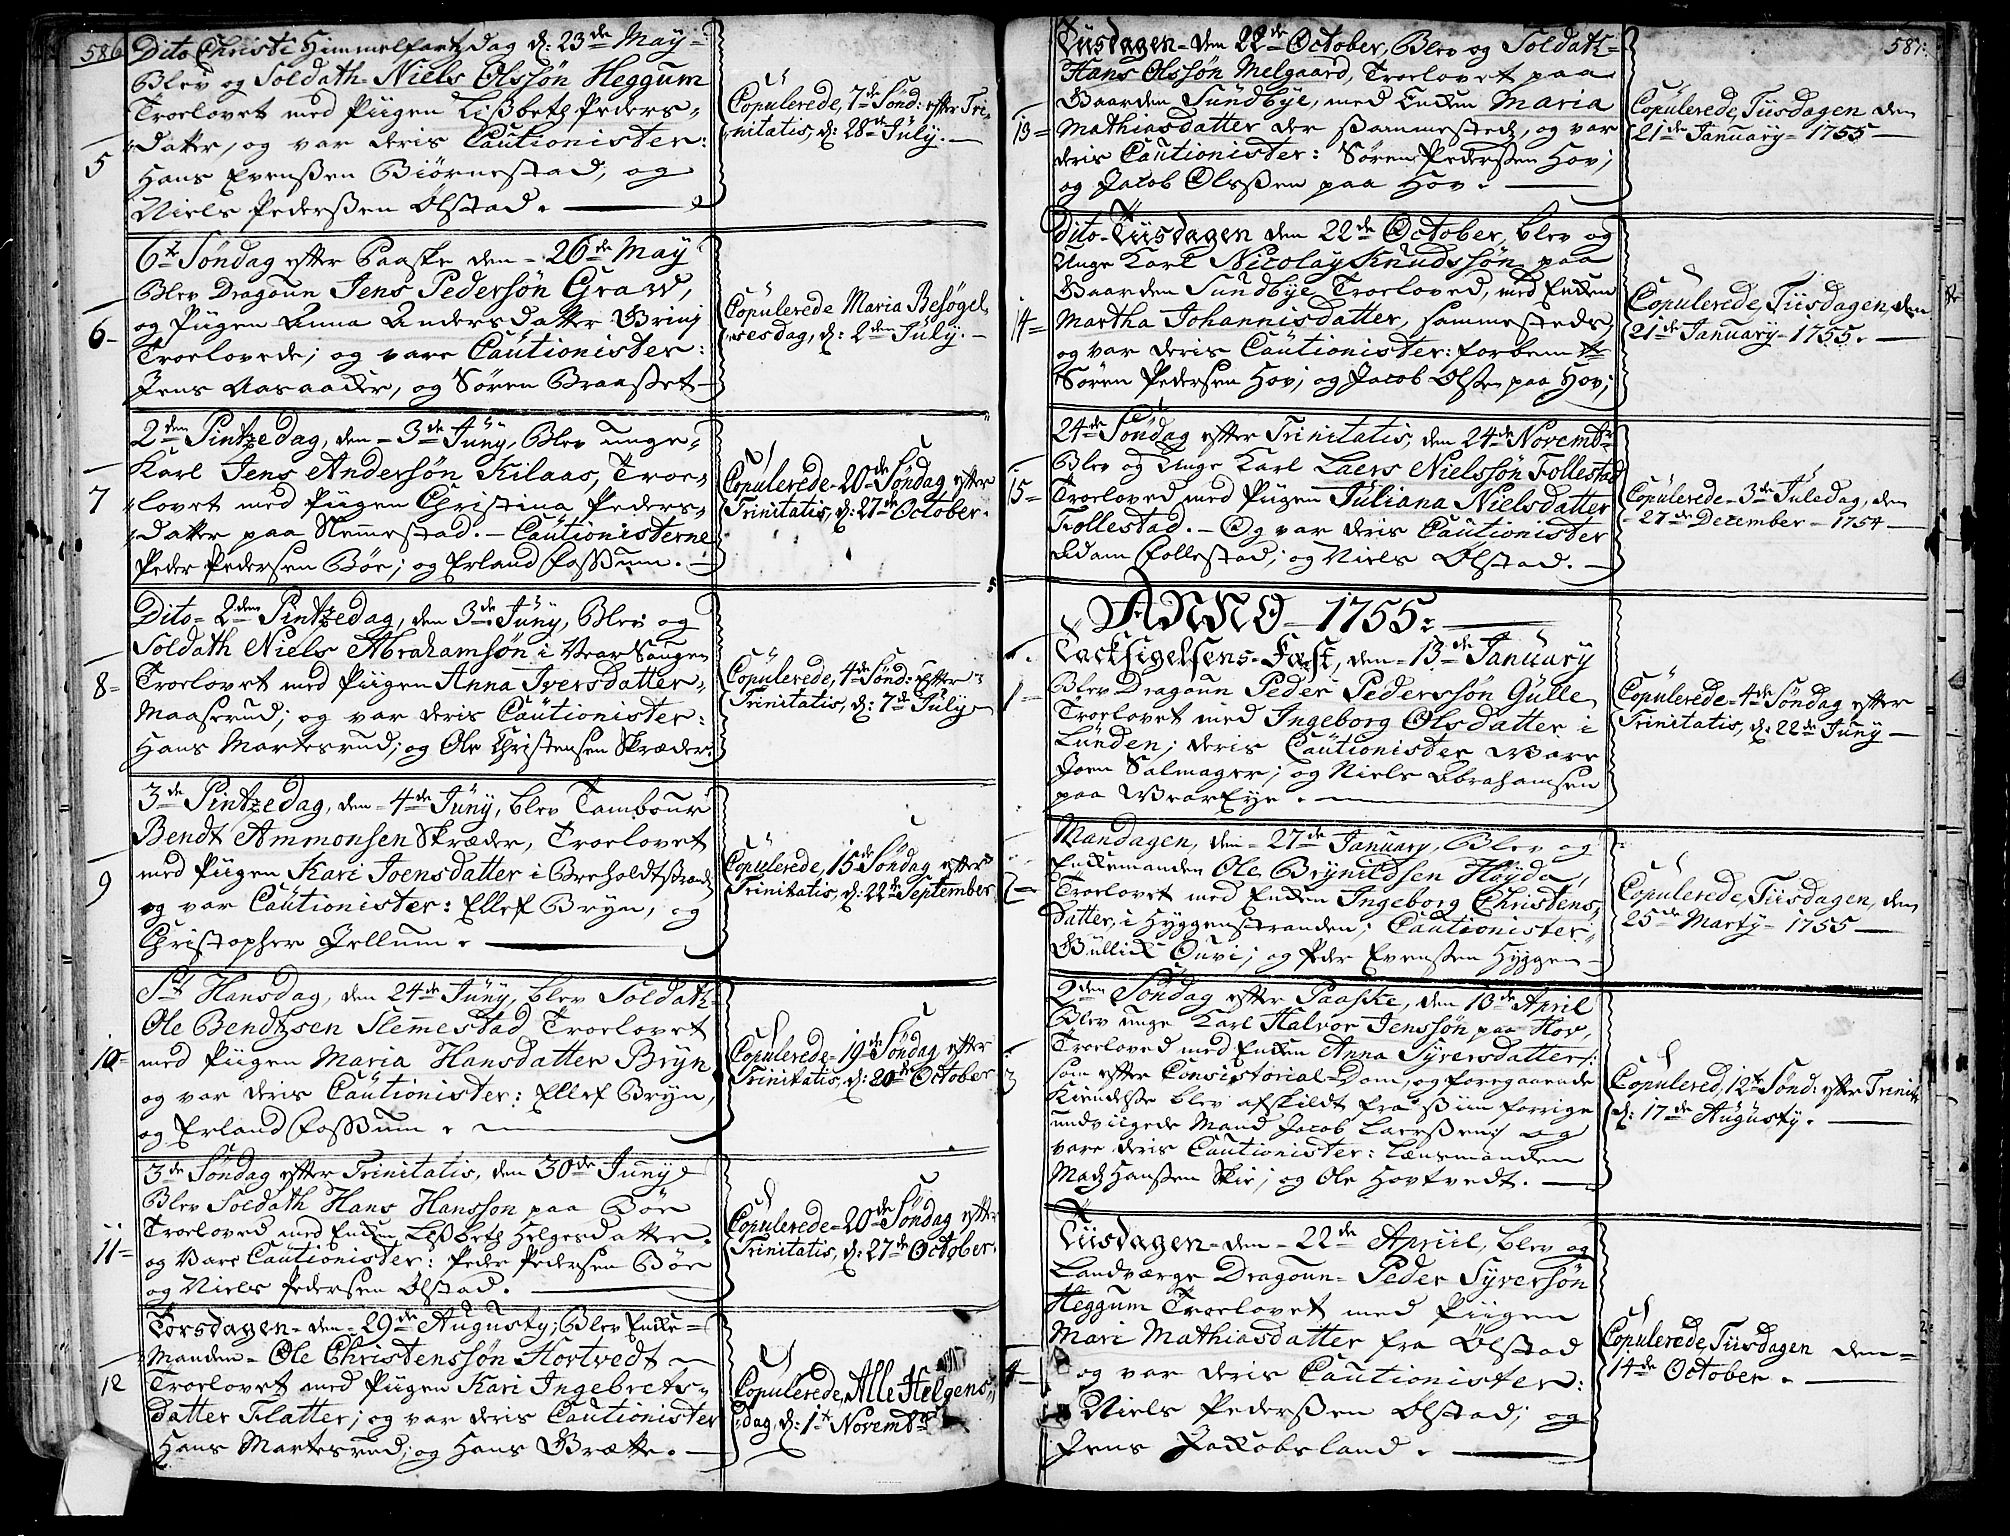 586
Dito Christi Himmelfartz dag d: 23de May
Blev og Soldath Niels Olssøn Heggum
Troelovet med Piigen Lissbeth Peders-
5
datter, og var deris Cautionister:
Hans Evenssen Biørnestad, og
Niels Pederssen Ølstad.
Copulerede, 7de Sønd: efter Tri-
nitatis, d: 28de July.
6te Søndag efter Paaske den 26de May
Blev Dragoun Jens Pedersøn Graw,
og Piigen Anna Andersdatter
6
Troelovede; og vare Cautionister:
Jens Aasaacker, og Søren Braasset
Copulerede Maria Besøgel-
sesdag, d: 2den July.
2den Pintzedag, den 3de Juny, Blev unge
Karl Jens Andersøn Kilaas, Troe-
7
lovet med Piigen Christina Peders-
datter paa Slemmestad. Cautionisterne
Peder Pedersen Bøe; og Erland Fossum.
Copulerede 20de Søndag efter
Trinitatis, d: 27de October.
Dito 2den Pintzedag, den 3de Juny, Blev og
Soldath Niels Abrahamsøn i Vear Saugen
8
Troelovet med Piigen Anna Iversdatter
Maaserud; og var deris Cautionister:
Hans Martesrud; og Ole Christensen Skræder.
Copulerede, 4de Sønd: efter
Trinitatis, d: 7de July
3de Pintzedag, den 4de Juny, blev Tambour
Bendt Ammonsen Skræder, Troelovet
9
med Piigen Kari Joensdatter i
og var Cautionister: Ellef Bryn, og
Christopher Jellum.
Copulerede, 15de Søndag efter
Trinitatis, d: 22de September
St Hansdag, den 24de Juny, blev Soldath
Ole Bendtzsen Slemmestad Troelovet
10
med Piigen Maria Hansdatter Bryn
og var deris Cautionister: Ellef Bryn,
og Erland Fossum.
Copulerede 19de Søndag efter
Trinitatis, d: 20de October
3de Søndag efter Trinitatis, den 30de Juny
Blev Soldath Hans Hanssøn paa Bøe
Troeloved med Encken Lissbeth Helgesdatter.
11
og Vare Cautionister: Peder Pedersen Bøe
og Niels Pedersen Ølstad.
Copulerede 20de Søndag efter
Trinitatis, d: 27de October.
Torsdagen den 29de Augusty; Blev Encke-
Manden Ole Christenssøn Hortvedt
12
Troelovet med Piigen Kari Ingebrets-
datter Flatter; og var deris Cautionister
Hans Martesrud; og Hans Brække.
Copulerede, Alle Helgens
dag, d: 1te Novembr
587.
Tiisdagen den 22de October, Blev og Soldath
Hans Olssøn Melgaard, Troelovet paa
Gaarden Sundbye, med Encken Maria
13
Mathiasdatter der sammesteds, og var
deris Cautionister: Søren Pederssen Hov;
og Jacob Olssen paa Hov.
Copulerede, Tiisdagen den
21de January 1755
Dito Tiisdagen den 22de October, blev og
Unge Karl Nicolay Knudssøn paa
Gaarden Sundbye Troeloved, med Encken
14
Martha Johannisdatter, sammesteds
og var deris Cautionister: forbem:te
Søren Pedersen Hov; og Jacob Olssen paa Hov;
Copulerede, Tiisdagen, den
21de January 1755.
24de Søndag efter Trinitatis, den 24de Novemb:
Blev og Unge Karl Laers Nielssøn Follestad
15
Troeloved med Piigen Juliana Nielsdatter
Follestad. Og var deris Cautionister
Adam Follestad; og Niels Ølstad.
Copulerede 3de Juledag, den
27de December 1754
ANNO 1755:
Tacksigelsens-Fæst, den 13de January
1
Blev Dragoun Peder Pederssøn Gulle
Troelovet med Ingeborg Olsdatter i
Lunden; deris Cautionister Vare
Joen Salmager; og Niels Abrahamsen
paa VearEye.
Copulerede 4de Søndag efter
Trinitatis, d: 22de Juny
Mandagen, den 27de January, Blev og
Enckemanden Ole Brynildsen Høyda,
2
Troelovet med Encken Ingeborg Christens-
datter, i Hyggenstranden; Cautionister
Gullick Ouvi; og Peder Evenssen Hyggen
Copulerede, Tiisdagen, den
25de Marty 1755
2den Søndag efter Paaske, den 13de April
Blev unge Karl Halvor Jenssøn paa Hov,
Troeloved med Encken Anna Syversdatter,
3
som efter Consistorial-Dom, og foregaaende
Kiendelse blev afskildt fra siin forrige
undviigede Mand Jacob Laerssen; og
vare deris Cautionister: Lænsmanden
Madz Hanssen Skie; og Ole Hovtvedt.
Copulered, 12te Sønd: efter Trinit:
d: 17de Augusty.
Tiisdagen den 22de Apriil, blev og
Landværge Dragoun Peder Syversøn
Heggum Troelovet med Piigen
Mari Mathiasdatter fra Ølstad
4
og var deris Cautionister:
Niels Pederssen Ølstad; og
Jens Jackobsland.
Copulerede, Tiisdagen den
14de October.